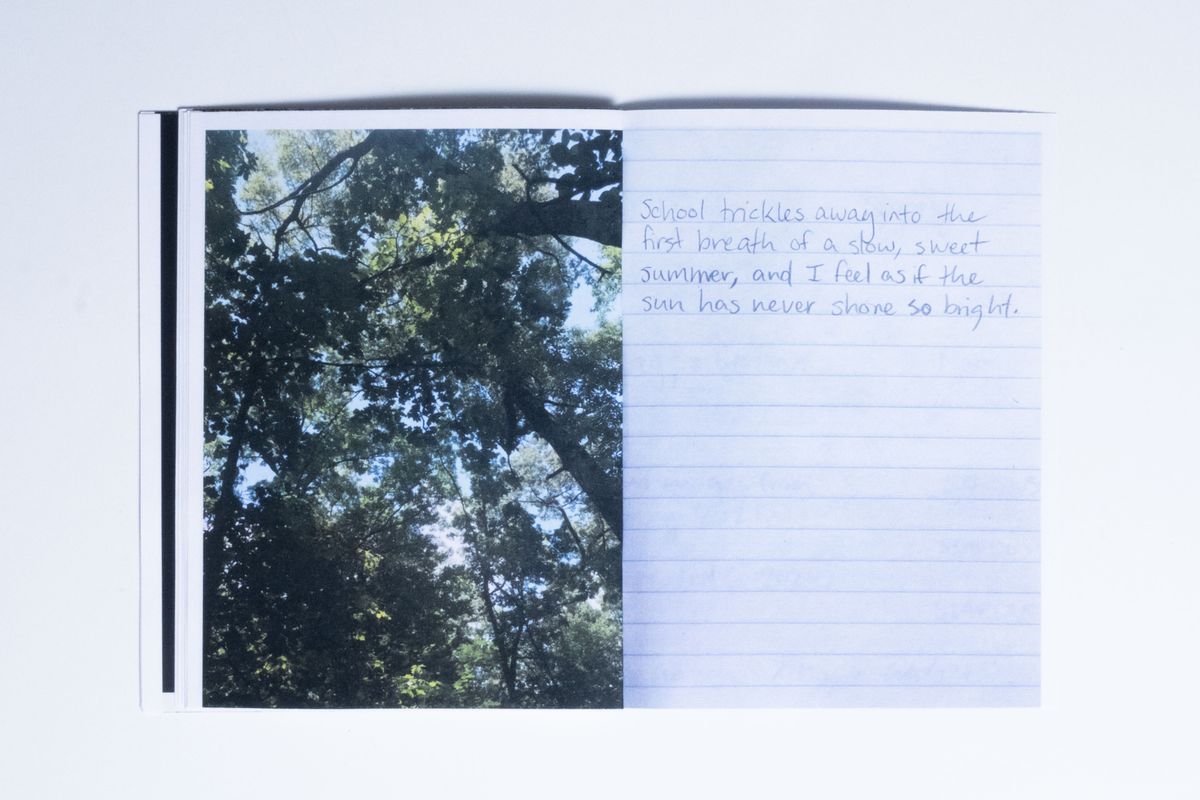 School trickles away into the
first breath of a slow, sweet
summer, and I feel as if the
sun has never shone so bright.